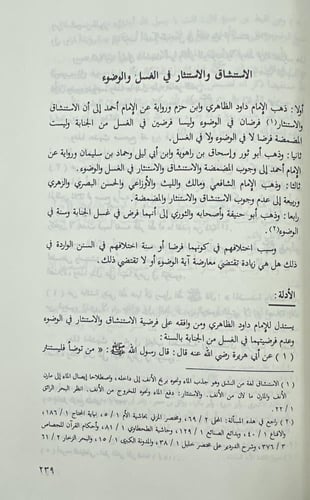 الاستنشاق والاستنثار في الغسل والوضوء
أولا: ذهب الإمام داود الظاهري وابن حزم ورواية عن الإمام أحمد إلى أن الاستنشاق
والاستنثار(١) فرضان في الوضوء وليسا فرضين في الغسل من الجنابة وليست
المضمضة فرضا لا في الوضوء ولا في الغسل.
ثانيا: ذهب أبو ثور وإسحاق بن راهوية وابن أبي ليلى وحماد بن سليمان ورواية عن
الإمام أحمد إلى وجوب المضمضة والاستنشاق والاستنثار في الوضوء والغسل.
ثالثا: ذهب الإمام الشافعي ومالك والليث والأوزاعي والحسن البصري والزهري
وربيعة إلى عدم وجوب الاستنشاق والاستنثار والمضمضة في الوضوء والغسل.
رابعا: ذهب أبو حنيفة وأصحابه والثوري إلى أنهما فرض في غسل الجنابة وسنة في
الوضوء(٢).
وسبب اختلافهم في كونهما فرضا أو سنة اختلافهم في السنن الواردة في
ذلك هل هي زيادة تقتضي معارضة آية الوضوء أو لا تقتضي ذلك.
الأدلة:
يستدل للإمام داود الظاهري ومن وافقه على فرضية الاستنشاق والاستنثار في الوضوء
وعدم فرضيتهما في الغسل من الجنابة بالسنة:
(١) عن أبي هريرة رضي الله عنه قال: قال رسول الله ﷺ: « من توضأ فليستنثر
(١) الاستنشاق لغة من النشق وهو جذب الماء ونحوه بريح الأنف إلى داخله، واصطلاحا إيصال الماء إلى مارن
الأنف والمارن ما لان من الأنف. والاستنثار: دفع الماء ونحوه للخروج من الأنف. انظر البحر الرائق
١ / ٢٢.
(٢) راجع في هذه المسألة: المحلى ٢ / ٦٩، ومختصر المزني بحاشية الأم ١ / ٥، نهاية المحتاج ١ / ١٨٦،
والاقناع ١ / ٤٠، وبدائع الصنائع ١ / ١٢٩، وحاشية الطحطاوي ١ / ٨١، وأحكام القرآن للجصاص
٣ / ٣٧٦، وشرح الدردير على مختصر خليل ١ / ٣٨، والمدونة الكبرى ١ / ١٥، والبحر الزخار ٢ / ٦١
٢٣٩